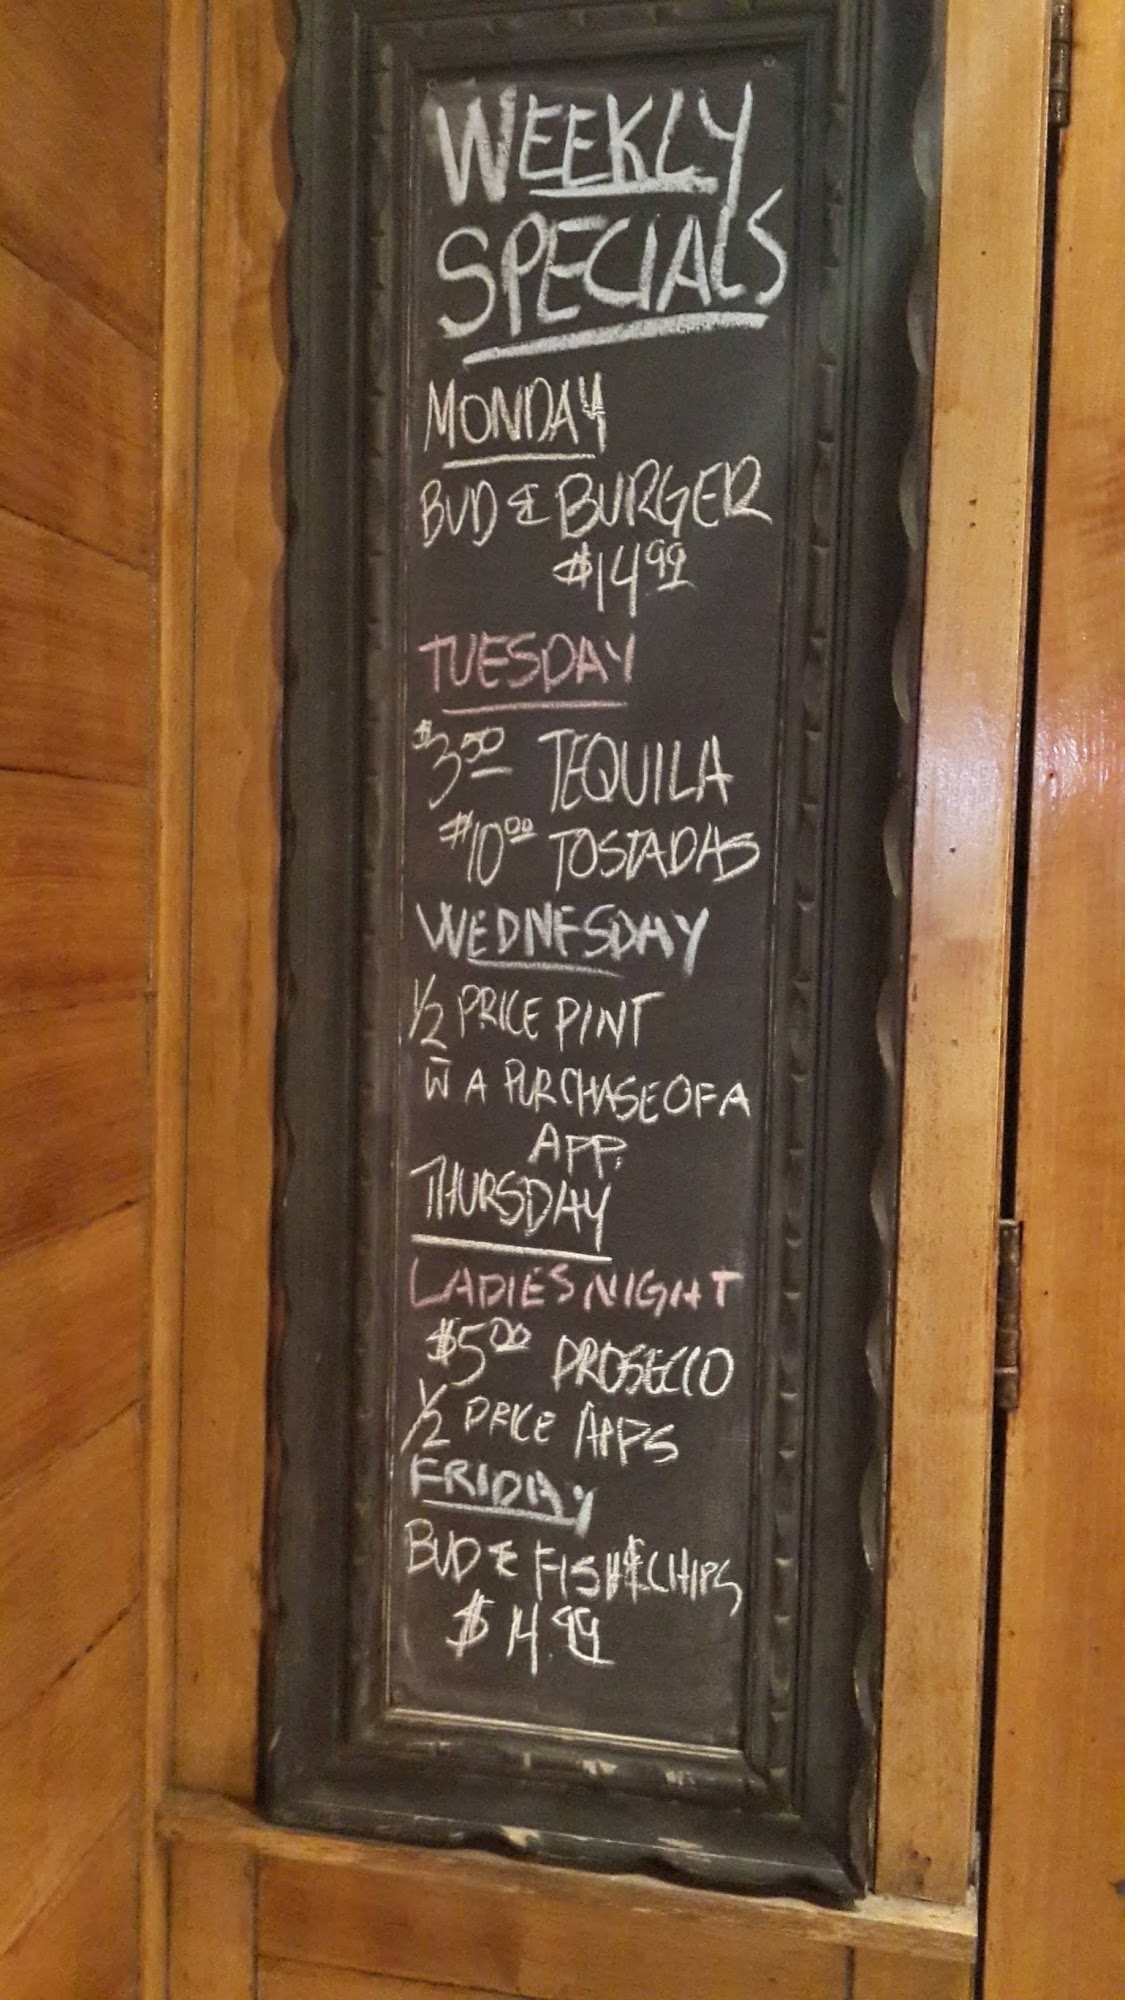 WEEKLY
SPECIALS
MONDAY
BUD & BURGER
$14.99
TUESDAY
$3.50 TEQUILA
$10.00 TOSTADAS
WEDNESDAY
1/2 PRICE PINT
W A PURCHASE OF A
APP.
THURSDAY
LADIES NIGHT
$5.00 PROSECCO
1/2 PRICE APPS
FRIDAY
BUD & FISH & CHIPS
$14.99